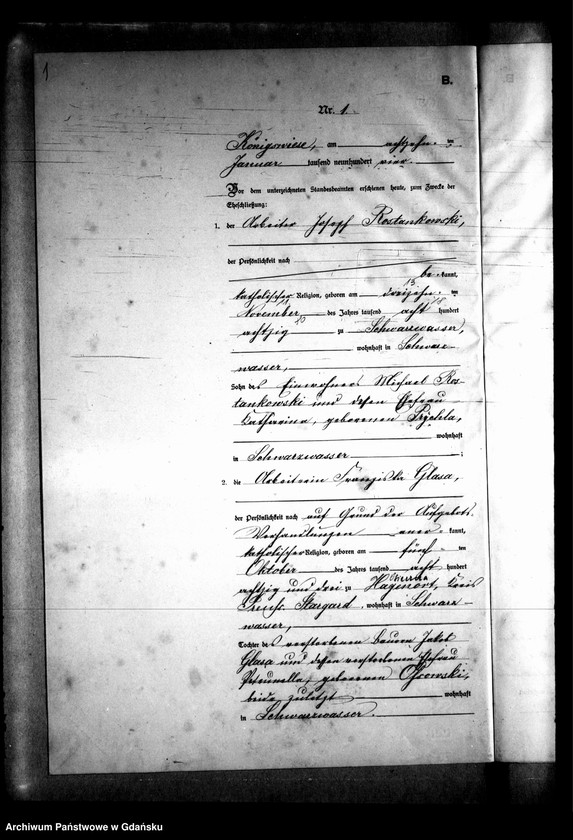 1
B.
Nr. 1.
Königswiese, am achtzehn ten
Januar tausend neunhundert vier.
Vor dem unterzeichneten Standesbeamten erschienen heute, zum Zwecke der
Eheschließung:
1. der Arbeiter Joseph Rostankowski,
der Persönlichkeit nach
be kannt,
katholischer Religion, geboren am dreizehn ten
November des Jahres tausend acht hundert
achtzig zu Schwarzwasser,
wohnhaft in Schwarz-
wasser,
Sohn des Einwohners Michael Ros-
tankowski und dessen Ehefrau
Katharina, geborenen
wohnhaft
in Schwarzwasser ;
2. die Arbeiterin Franziska Glasa,
der Persönlichkeit nach auf Grund der Aufgebots-
Verhandlungen aner kannt,
katholischer Religion, geboren am fünf ten
Oktober des Jahres tausend acht hundert
achtzig und drei zu Hagenort, Kreis
Preuß. Stargard, wohnhaft in Schwarz-
wasser,
Tochter des verstorbenen Bauern Jakob
Glasa und dessen verstorbenen Ehefrau
Petronella, geborenen Ossowski,
beide zuletzt wohnhaft
in Schwarzwasser.
Archiwum Państwowe w Gdańsku